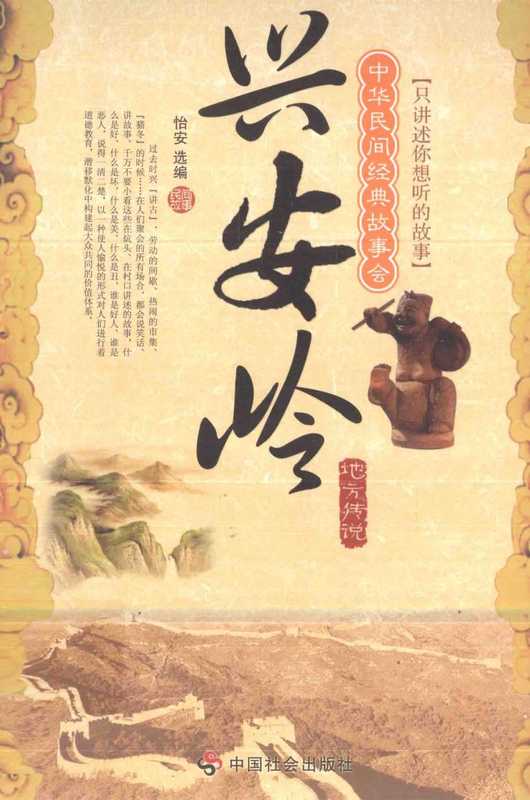 【只讲述你想听的故事】
中华民间经典故事会
兴安岭
地方传说
怡安 选编
民间故事
过去时兴“讲古”，劳动的间歇、热闹的市集、
“猫冬”的时候……在人们聚会的所有场合，都会说笑话、
讲故事，千万不要小看这些在炕头、在村口讲述的故事，什
么是好、什么是坏，什么是美、什么是丑，谁是好人、谁是
恶人，说得一清二楚，以一种使人愉悦的形式对人们进行着
道德教育，潜移默化中构建起大众共同的价值体系。
中国社会出版社